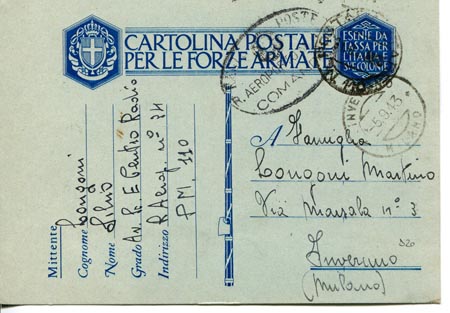 CARTOLINA POSTALE
PER LE FORZE ARMATE
ESENTE DA
TASSA PER
L'ITALIA
E SUE COLONIE
POSTE
R. AEROP
COMA
INVE
-5.9.43
Mittente
Cognome Longoni
Nome Silvio
Grado Av. Sc. E Centro Radio
Indirizzo R. Aerop. n° 34
P.M. 110
A Famiglia
Longoni Martino
Via Marsala n° 3
Inveruno
(Milano)